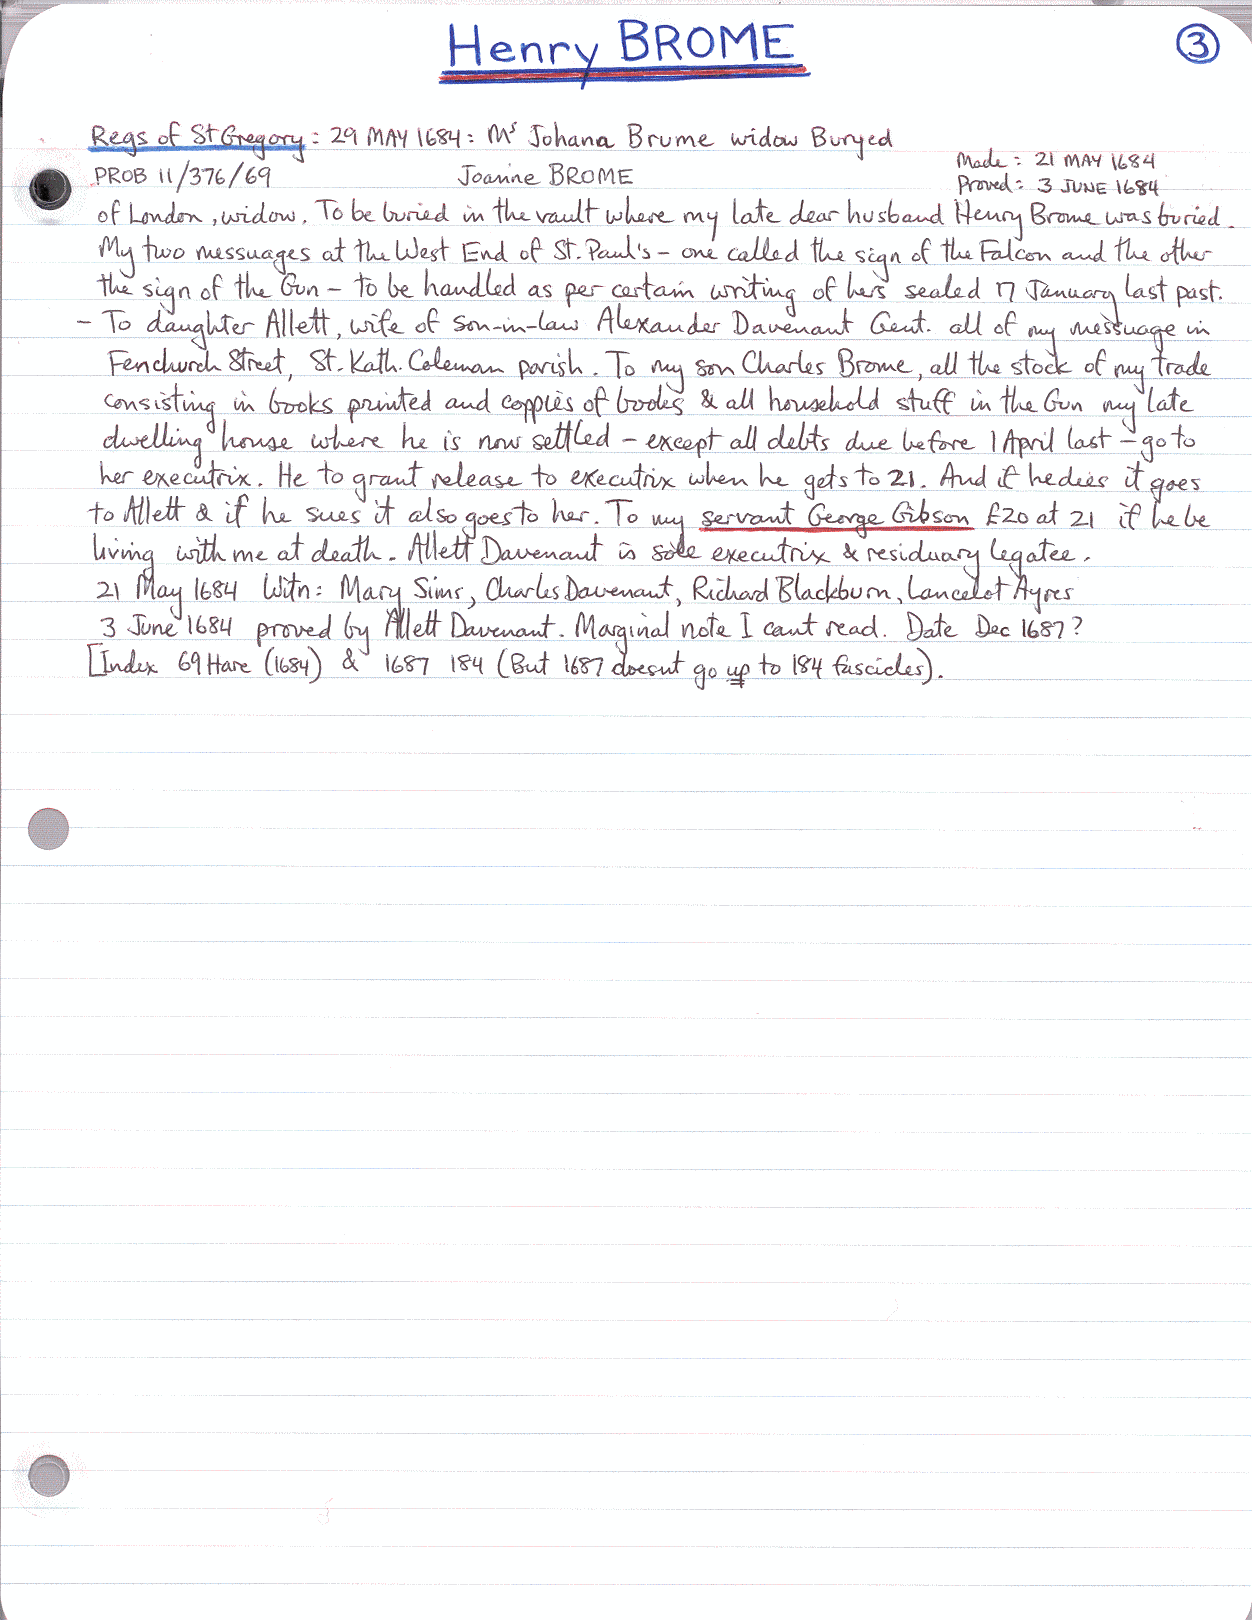 Henry BROME
3
Regs of St Gregory: 29 MAY 1684: Ms Johana Brume widow Buryed
Made: 21 MAY 1684
PROB 11/376/69 Joanne BROME
Proved: 3 JUNE 1684
of London, widow. To be buried in the vault where my late dear husband Henry Brome was buried.
My two messuages at the West End of St. Paul's - one called the sign of the Falcon and the other
the sign of the Gun - to be handled as per certain writing of hers sealed 17 January last past.
- To daughter Allett, wife of son-in-law Alexander Davenant Gent. all of my messuage in
Fenchurch Street, St. Kath. Coleman parish. To my son Charles Brome, all the stock of my trade
consisting in books printed and coppies of books & all household stuff in the Gun my late
dwelling house where he is now settled - except all debts due before 1 April last - go to
her executrix. He to grant release to executrix when he gets to 21. And if he dies it goes
to Allett & if he sues it also goes to her. To my servant George Gibson £20 at 21 if he be
living with me at death. Allett Davenant is sole executrix & residuary legatee.
21 May 1684 Witn: Mary Sims, Charles Davenant, Richard Blackburn, Lancelot Ayres
3 June 1684 proved by Allett Davenant. Marginal note I cant read. Date Dec 1687?
[Index 69 Hare (1684) & 1687 184 (But 1687 doesnt go up to 184 fascicles).